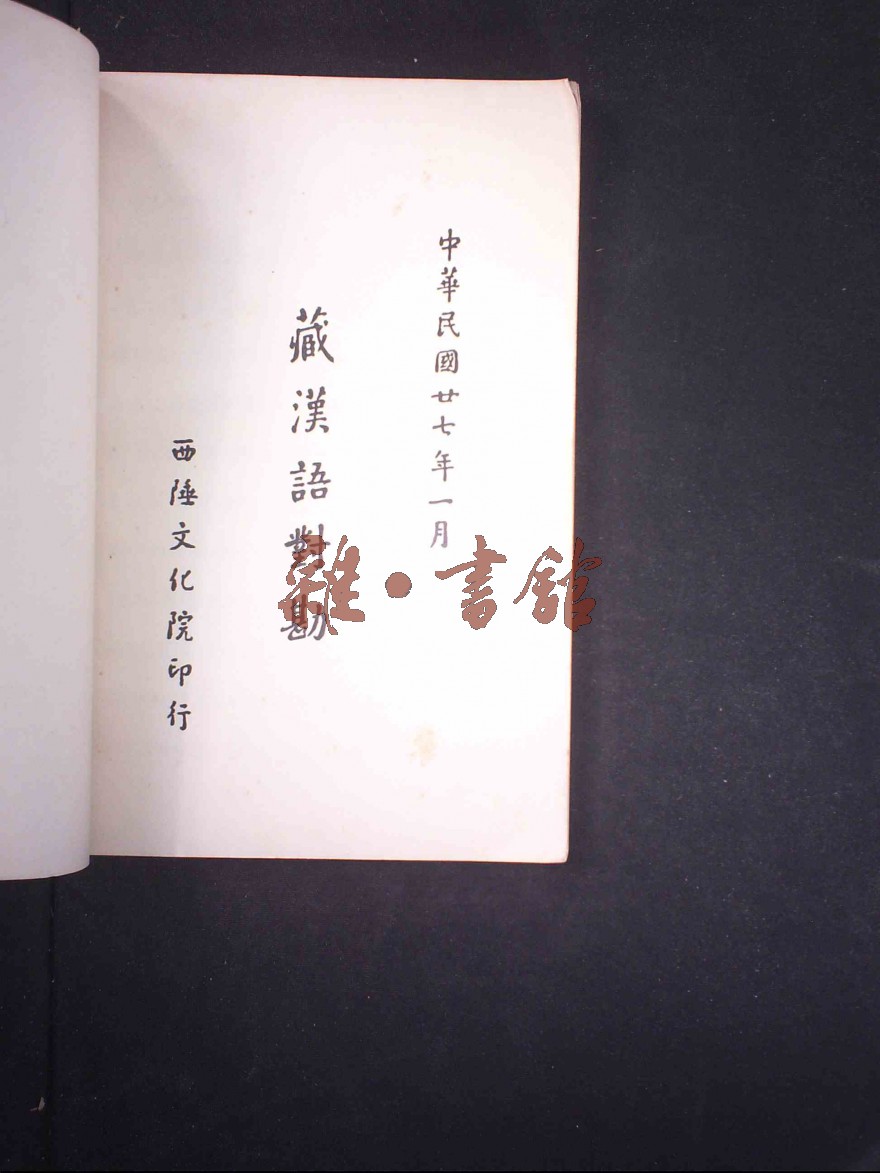 中華民國廿七年一月
藏漢語對勘
西陲文化院印行
雜·書館